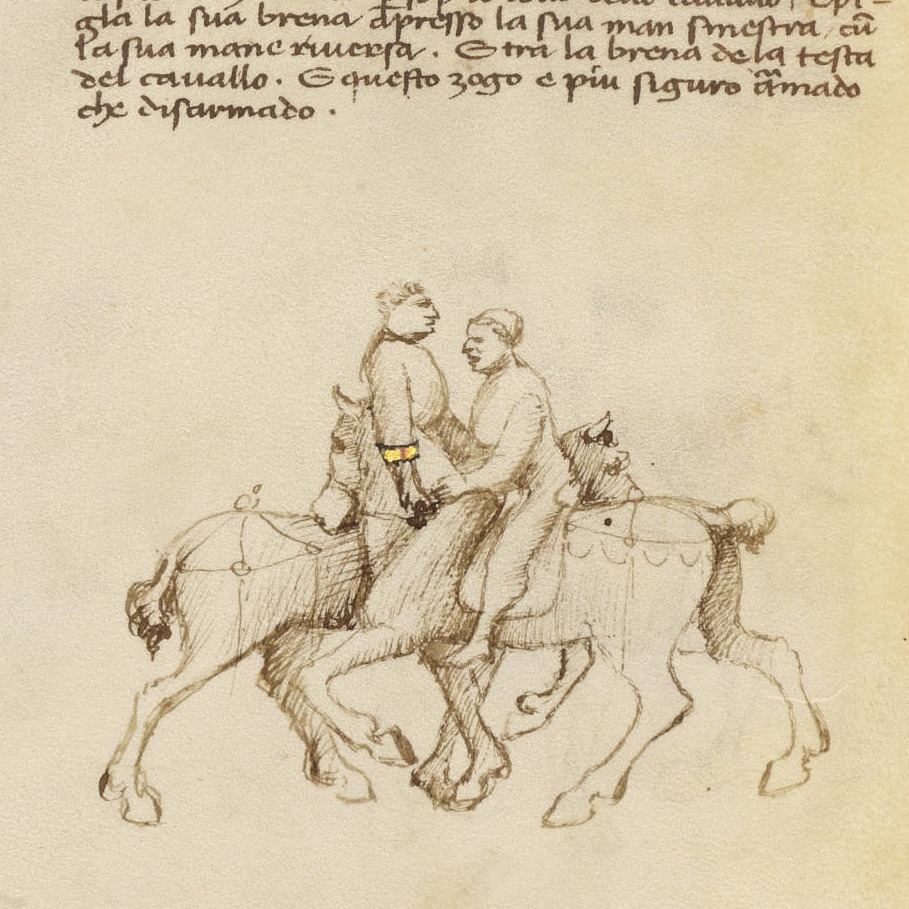 gla la sua brena apresso la sua man sinestra, cū
la sua mane riversa. E tra la brena dela testa
del cavallo. E questo zogo e piu siguro a̅rmado
che disarmado.